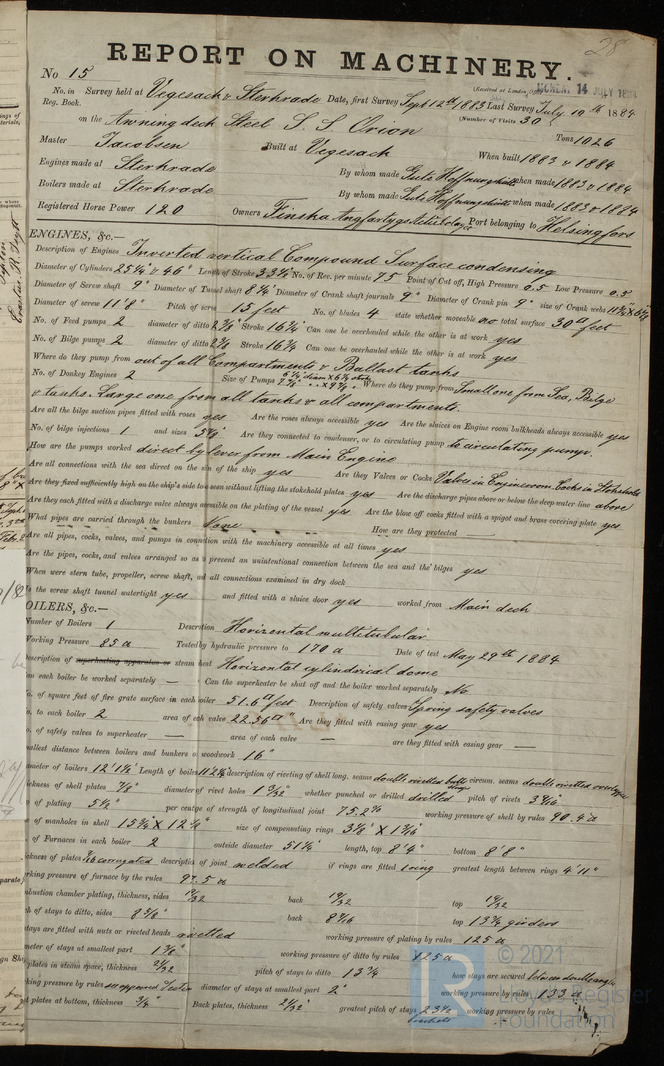 28
REPORT ON MACHINERY.
No 15
(Received at London Office MONDAY 14 JULY 1884
No. in Survey held at Vegesack & Sterkrade Date, first Survey Sept 12th 1883 Last Survey July 10th 1884
Reg. Book. (Number of Visits 30)
on the Awning deck Steel S. S. Orion Tons 1026
Master Jacobsen Built at Vegesack When built 1883 & 1884
Engines made at Sterkrade By whom made Gute Hoffnungshütte when made 1883 & 1884
Boilers made at Sterkrade By whom made Gute Hoffnungshütte when made 1883 & 1884
Registered Horse Power 120 Owners Finska Ångfartygs Port belonging to Helsingfors
ENGINES, &c.—
Description of Engines Inverted vertical Compound Surface condensing
Diameter of Cylinders 25¼" & 46" Length of Stroke 33¼" No. of Rev. per minute 75 Point of Cut off, High Pressure 0.5 Low Pressure 0.5
Diameter of Screw shaft 9" Diameter of Tunnel shaft 8¼" Diameter of Crank shaft journals 9" Diameter of Crank pin 9" size of Crank webs
Diameter of screw 11'8" Pitch of screw 15 feet No. of blades 4 state whether moveable no total surface 30 □ feet
No. of Feed pumps 2 diameter of ditto Stroke 16¾" Can one be overhauled while the other is at work yes
No. of Bilge pumps 2 diameter of ditto Stroke 16¾ Can one be overhauled while the other is at work yes
Where do they pump from out of all Compartments & Ballast tanks
No. of Donkey Engines 2 Size of Pumps Where do they pump from Small one from Sea, Bilge
& tanks. Large one from all tanks & all compartments.
Are all the bilge suction pipes fitted with roses yes Are the roses always accessible yes Are the sluices on Engine room bulkheads always accessible yes
No. of bilge injections 1 and sizes Are they connected to condenser, or to circulating pump to circulating pump.
How are the pumps worked direct by lever from Main Engine
Are all connections with the sea direct on the skin of the ship yes Are they Valves or Cocks Valves in Engineroom Cocks in Stokehole
Are they fixed sufficiently high on the ship's side to be seen without lifting the stokehold plates yes Are the discharge pipes above or below the deep water line above
Are they each fitted with a discharge valve always accessible on the plating of the vessel yes Are the blow off cocks fitted with a spigot and brass covering plate yes
What pipes are carried through the bunkers None How are they protected —
Are all pipes, cocks, valves, and pumps in connection with the machinery accessible at all times yes
Are the pipes, cocks, and valves arranged so as to prevent an unintentional connection between the sea and the bilges yes
When were stern tube, propeller, screw shaft, and all connections examined in dry dock
Is the screw shaft tunnel watertight yes and fitted with a sluice door yes worked from Main deck
OILERS, &c.—
Number of Boilers 1 Description Horizontal multitubular
Working Pressure 85 Tested by hydraulic pressure to 170 Date of test May 29th 1884
Description of superheating apparatus or steam chest Horizontal cylindrical dome
an each boiler be worked separately — Can the superheater be shut off and the boiler worked separately No
o. of square feet of fire grate surface in each boiler 51.6 □ feet Description of safety valves Spring safety valves
o. to each boiler 2 area of each valve 22.56 □" Are they fitted with easing gear yes
o. of safety valves to superheater — area of each valve — are they fitted with easing gear —
mallest distance between boilers and bunkers or woodwork 16"
ameter of boilers Length of boilers description of riveting of shell long. seams double rivetted butt straps circum. seams double rivetted overlapped
ickness of shell plates 7/8" diameter of rivet holes 1 3/32" whether punched or drilled drilled pitch of rivets
of plating per centge of strength of longitudinal joint 75.2% working pressure of shell by rules 90.4
of manholes in shell 15¾" X 12¼" size of compensating rings
of Furnaces in each boiler 2 outside diameter 51¼" length, top 8'4" bottom 8'8"
ickness of plates corrugated description of joint welded if rings are fitted 1 ring greatest length between rings 4'11"
rking pressure of furnace by the rules 97.5
mbustion chamber plating, thickness, sides 19/32 back 19/32 top 19/32
h of stays to ditto, sides back top 13¼ girders
stays are fitted with nuts or riveted heads rivetted working pressure of plating by rules 125
meter of stays at smallest part working pressure of ditto by rules 125
plates in steam space, thickness pitch of stays to ditto 13¾ how stays are secured between double angle
king pressure by rules diameter of stays at smallest part 2" working pressure by rules 133
t plates at bottom, thickness ¾" Back plates, thickness greatest pitch of stays working pressure by rules
© 2021
Lloyd's Register
Foundation